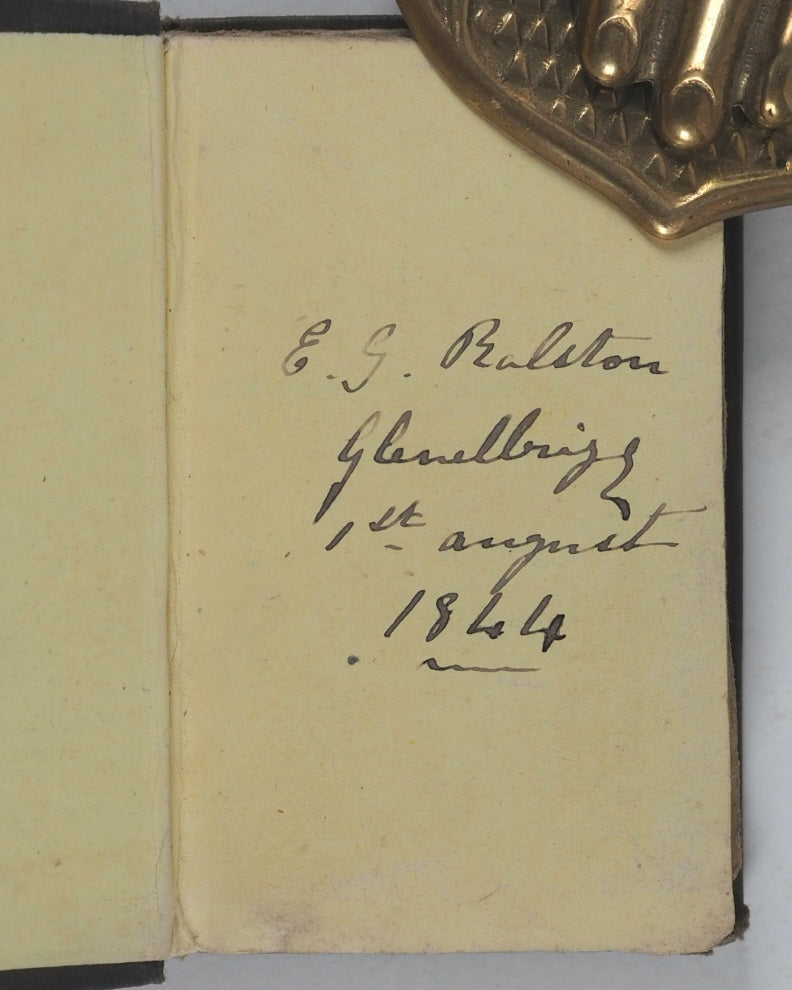 E. G. Ralston
Glenellrigg
1st august
1844